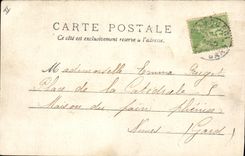 CARTE POSTALE
Ce côté est exclusivement réservé à l'adresse.
Mademoiselle Emma
Place de la Catédrale 8
Maison du pain
Nimes (Gard)